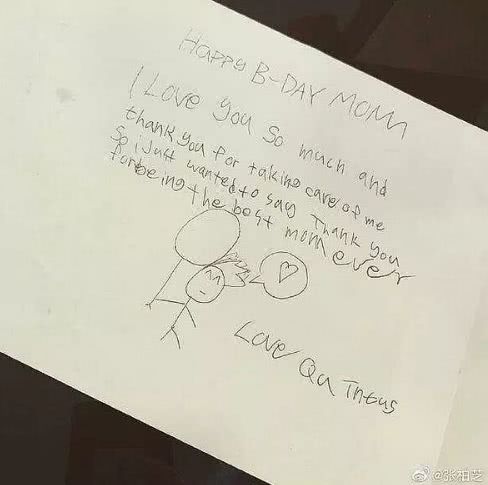 HAPPY B-DAY MOM
I LOVE you so much and
thank you for taking care of me
So i Just wanted to say Thank you
for being the best mom ever
Love Quintus
@张柏芝